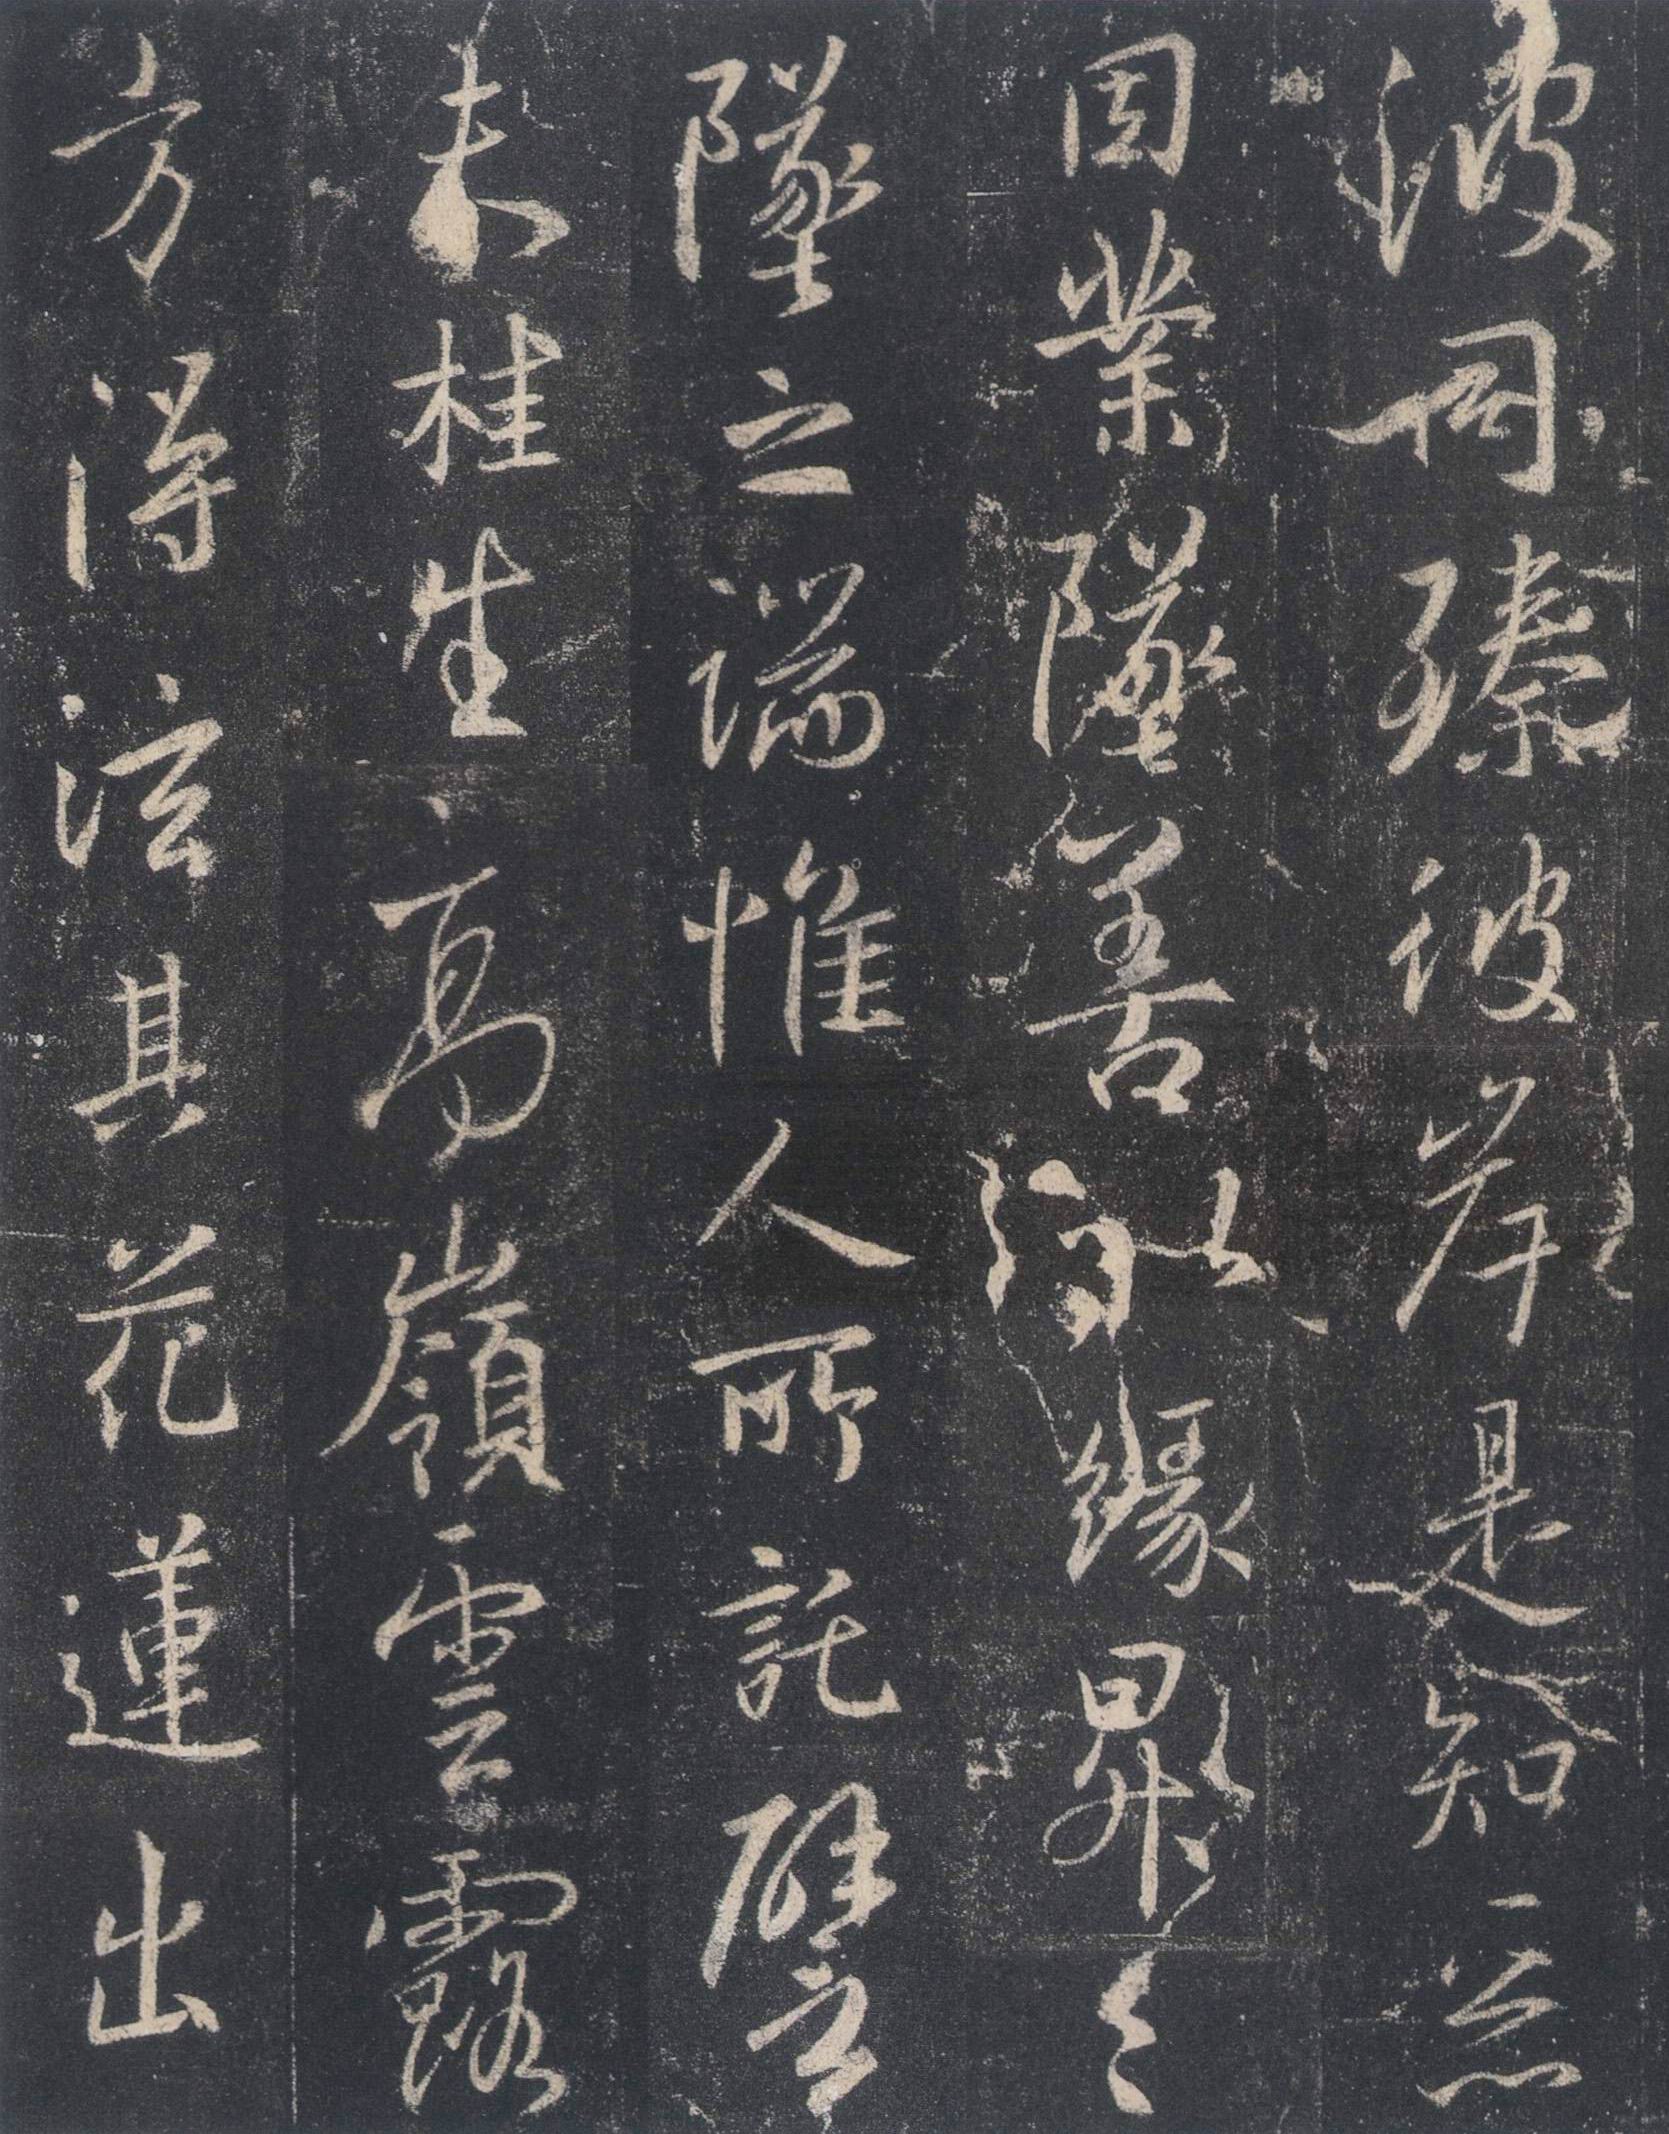 波同臻彼岸是知惡
因業墜善以緣昇昇
墜之端惟人所託譬
夫桂生高嶺雲露
方得泫其花蓮出